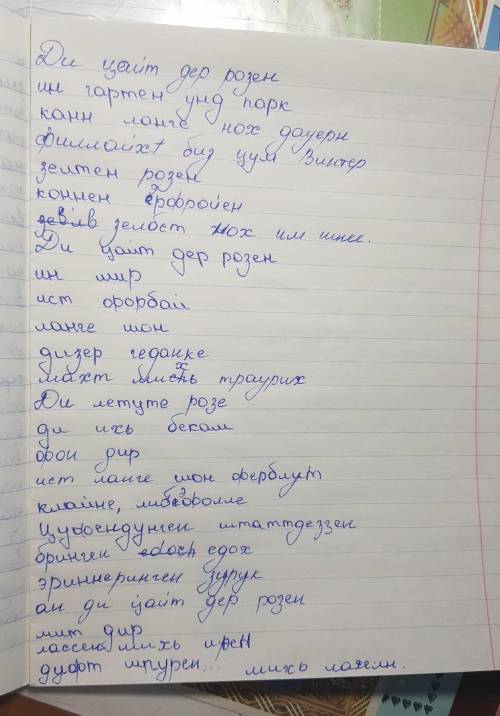 Ди цайт дер розен
ин гартен унд парк
канн ланге нох дауерн
Филлайхt биз цум Винтер
зелтен розен
коннен эрфройен
зелбст нох им шнее.
Ди цайт дер розен
ин мир
ист форбай
ланге шон
дизер геданке
махт михь траурих
Ди летуте розе
ди ихь бекам
фон дир
ист ланге шон ферблут
клайне, либефолле
Цуфендунген штаттдеззен
бринген едох
эриннеринген зурук
ан ди цайт дер розен
мит дир
лассен михь ирен
дуфт шпурен... михь лахелн.